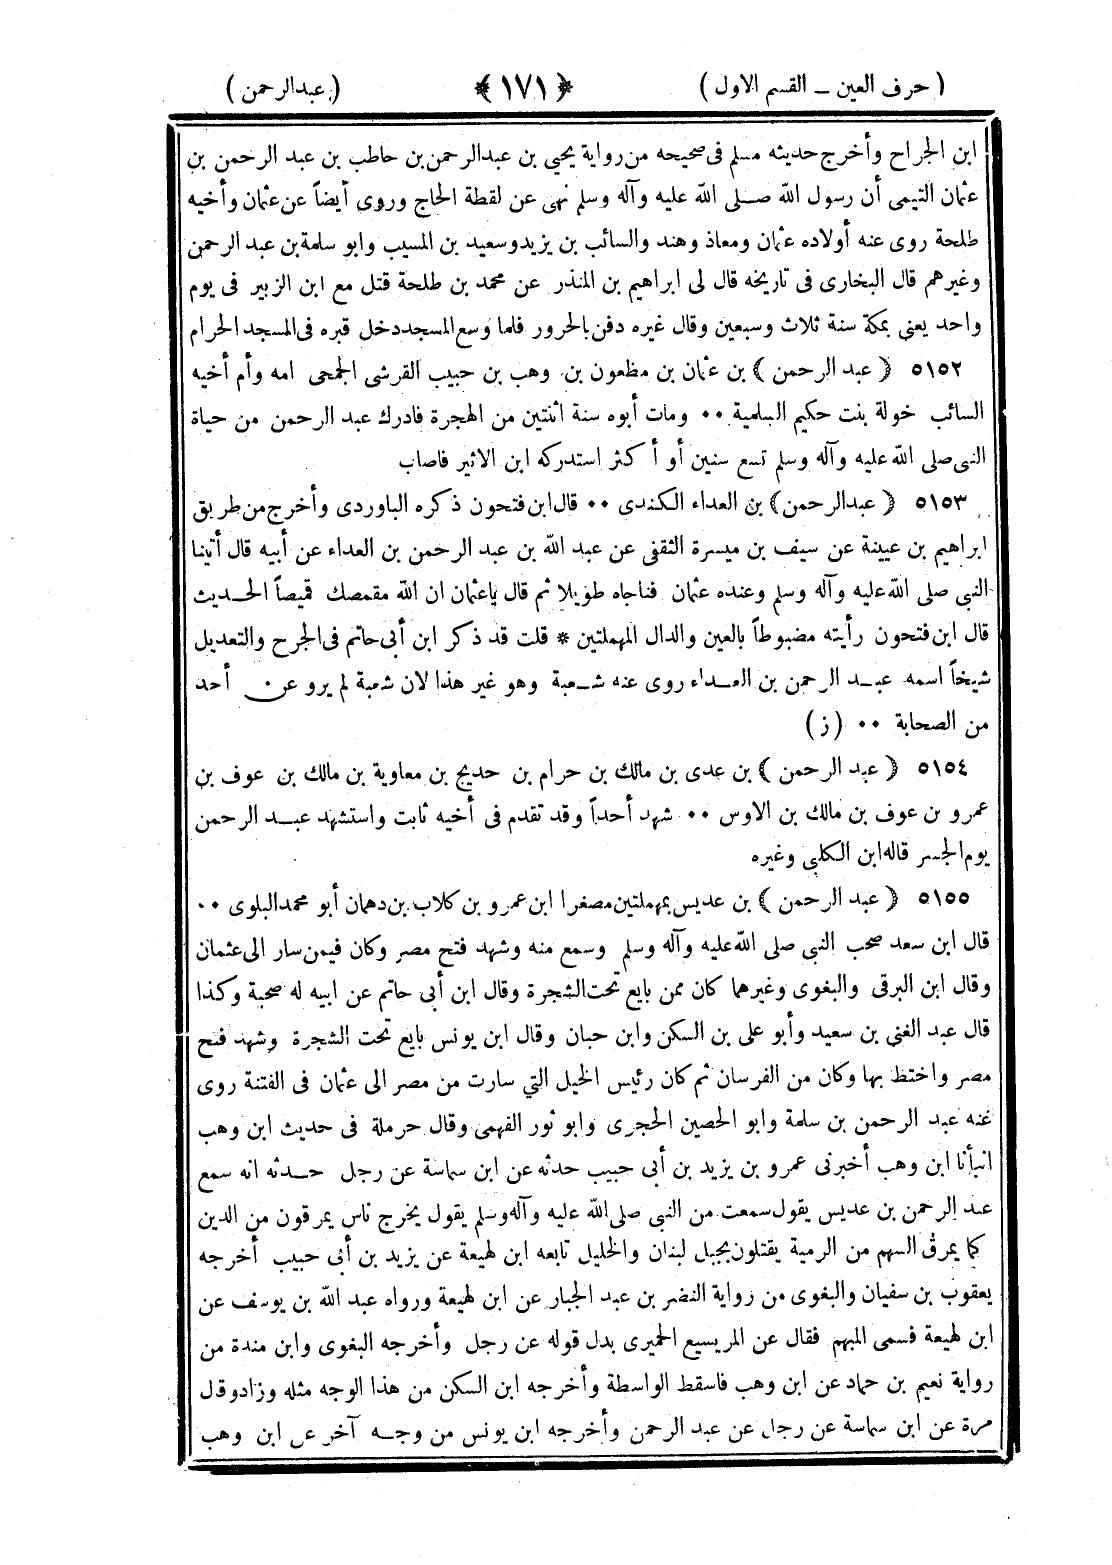 ( حرف العين ــ القسم الاول )
﴿ ١٧١ ﴾
( عبدالرحمن )
ابن الجراح وأخرج حديثه مسلم فى صحيحه من رواية يحيى بن عبدالرحمن بن حاطب بن عبد الرحمن بن
عثمان التيمى أن رسول الله صلى الله عليه وآله وسلم نهى عن لقطة الحاج وروى أيضاً عن عثمان وأخيه
طلحة روى عنه أولاده عثمان ومعاذ وهند والسائب بن يزيد وسعيد بن المسيب وابو سلمة بن عبد الرحمن
وغيرهم قال البخارى فى تاريخه قال لى ابراهيم بن المنذر عن محمد بن طلحة قتل مع ابن الزبير فى يوم
واحد يعنى بمكة سنة ثلاث وسبعين وقال غيره دفن بالحرور فلما وسع المسجد دخل قبره فى المسجد الحرام
٥١٥٢ ﴿ عبد الرحمن ﴾ بن عثمان بن مظعون بن وهب بن حبيب القرشى الجمحى امه وأم أخيه
السائب خولة بنت حكيم السلمية ٠٠ ومات أبوه سنة اثنتين من الهجرة فادرك عبد الرحمن من حياة
النبى صلى الله عليه وآله وسلم تسع سنين أو أكثر استدركه ابن الاثير فاصاب
٥١٥٣ ﴿ عبدالرحمن ﴾ بن العداء الكندى ٠٠ قال ابن فتحون ذكره الباوردى وأخرج من طريق
ابراهيم بن عيينة عن سيف بن ميسرة الثقفى عن عبد الله بن عبد الرحمن بن العداء عن أبيه قال أتينا
النبى صلى الله عليه وآله وسلم وعنده عثمان فناجاه طويلا ثم قال ياعثمان ان الله مقمصك قميصاً الحديث
قال ابن فتحون رأيته مضبوطاً بالعين والدال المهملتين * قلت قد ذكر ابن أبى حاتم فى الجرح والتعديل
شيخاً اسمه عبد الرحمن بن العداء روى عنه شعبة وهو غير هذا لان شعبة لم يرو عن أحد
من الصحابة ٠٠ ( ز )
٥١٥٤ ﴿ عبد الرحمن ﴾ بن عدى بن مالك بن حرام بن حديج بن معاوية بن مالك بن عوف بن
عمرو بن عوف بن مالك بن الاوس ٠٠ شهد أحداً وقد تقدم فى أخيه ثابت واستشهد عبد الرحمن
يوم الجسر قاله ابن الكلبى وغيره
٥١٥٥ ﴿ عبد الرحمن ﴾ بن عديس بمهملتين مصغرا ابن عمرو بن كلاب بن دهمان أبو محمد البلوى ٠٠
قال ابن سعد صحب النبى صلى الله عليه وآله وسلم وسمع منه وشهد فتح مصر وكان فيمن سار الى عثمان
وقال ابن البرقى والبغوى وغيرهما كان ممن بايع تحت الشجرة وقال ابن أبى حاتم عن ابيه له صحبة وكذا
قال عبد الغنى بن سعيد وأبو على بن السكن وابن حبان وقال ابن يونس بايع تحت الشجرة وشهد فتح
مصر واختط بها وكان من الفرسان ثم كان رئيس الخيل التي سارت من مصر الى عثمان فى الفتنة روى
عنه عبد الرحمن بن سلمة وابو الحصين الحجرى وابو ثور الفهمى وقال حرملة فى حديث ابن وهب
انبأنا ابن وهب أخبرنى عمرو بن يزيد بن أبى حبيب حدثه عن ابن سماسة عن رجل حدثه انه سمع
عبد الرحمن بن عديس يقول سمعت من النبى صلى الله عليه وآله وسلم يقول يخرج ناس يمرقون من الدين
كما يمرق السهم من الرمية يقتلون بجبل لبنان والخليل تابعه ابن لهيعة عن يزيد بن أبى حبيب أخرجه
يعقوب بن سفيان والبغوى من رواية النضر بن عبد الجبار عن ابن لهيعة ورواه عبد الله بن يوسف عن
ابن لهيعة فسمى المبهم فقال عن المريسيع الحميرى بدل قوله عن رجل وأخرجه البغوى وابن مندة من
رواية نعيم بن حماد عن ابن وهب فاسقط الواسطة وأخرجه ابن السكن من هذا الوجه مثله وزاد وقل
مرة عن ابن سماسة عن رجل عن عبد الرحمن وأخرجه ابن يونس من وجه آخر عن ابن وهب